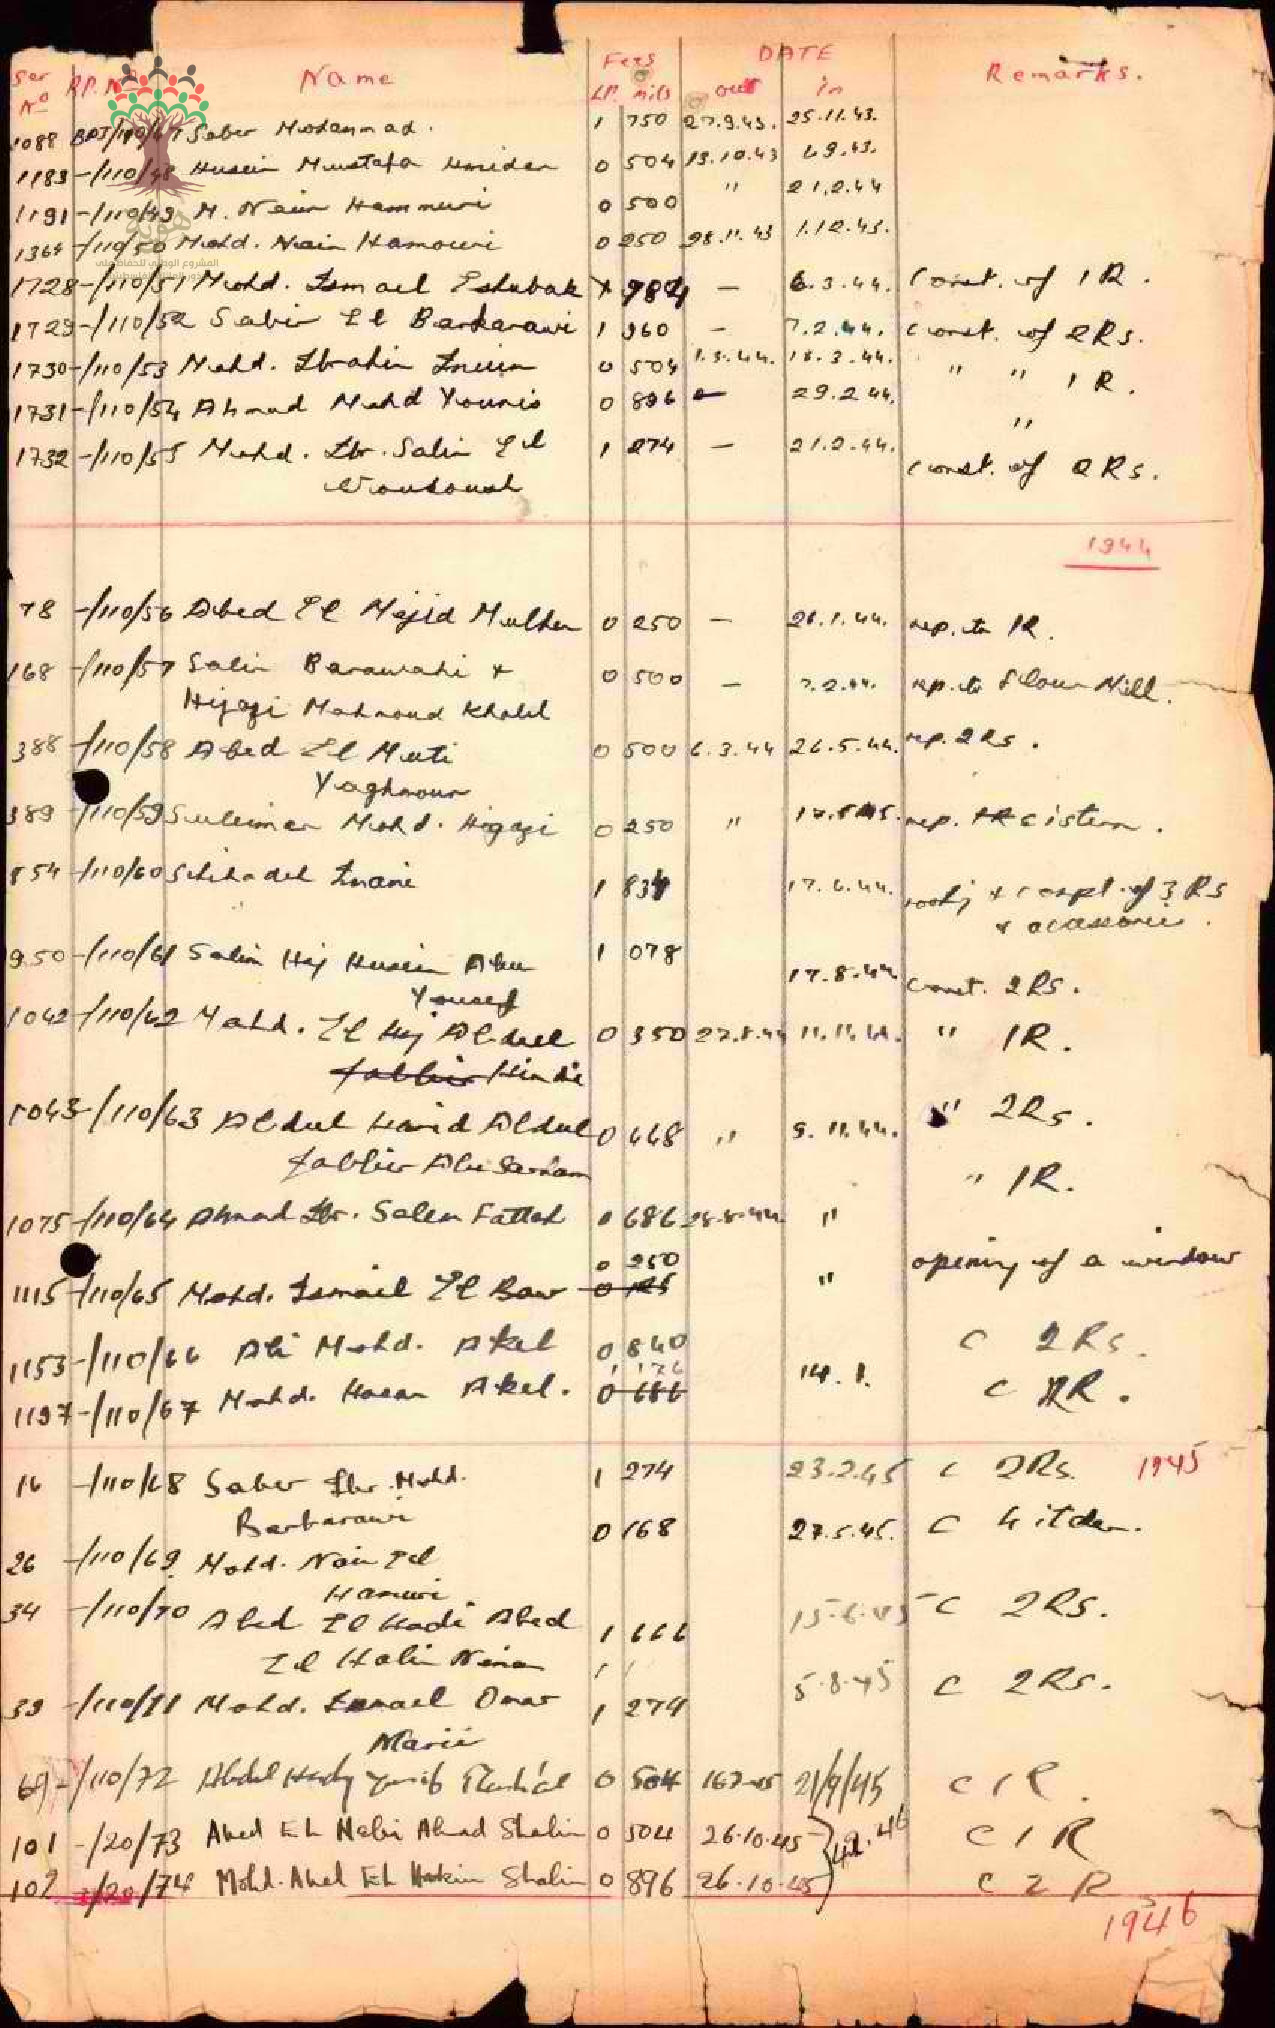 Ser No B.P. No Name Fees LP. mils DATE out in Remarks.
1088 BPJ/110/47 Saber Mohammad. 1 750 27.9.43. 25.11.43.
1183 -/110/48 Husein Mustafa Hmidan 0 504 13.10.43 6.9.43.
1191 -/110/49 M. Naim Hammuri 0 500 " 21.2.44
1364 -/110/50 Mohd. Naim Hamouri 0 250 28.11.43 1.12.43.
1728 -/110/51 Mohd. Ismael Eshubak 984 — 6.3.44. Const. of 1 R.
1729 -/110/52 Sabir El Barbarawi 1 960 — 7.2.44. const. of 2 Rs.
1730 -/110/53 Mohd. Ibrahim 0 504 1.3.44. 18.3.44. " " 1 R.
1731 -/110/54 Ahmad Mohd Younis 0 896 — 29.2.44. "
1732 -/110/55 Mohd. Ibr. Salim El 1 274 — 21.2.44. const. of 2 Rs.
1944
78 -/110/56 Abed El Majid 0 250 — 26.1.44. rep. to 1R.
168 -/110/57 Salim & 0 500 — 7.2.44. rep. to flour Mill.
Hijazi Mahmoud Khalil
388 -/110/58 Abed El Muti 0 500 6.3.44 26.5.44. rep. 2 Rs.
Yaghmour
389 -/110/59 Suleiman Mohd. Hijazi 0 250 " rep. cistern.
854 -/110/60 Shihadeh 1 834 17.6.44. & compl. of 3 Rs
&
950 -/110/61 Salim Haj Husein Abu 1 078 17.8.44 const. 2 Rs.
Yousef
1042 -/110/62 Mohd. El Haj Abdul 0 350 27.8.44 11.11.44. " 1R.
Jabbir Hindi
1043 -/110/63 Abdul Hamid Abdul 0 448 " 9.11.44. " 2Rs.
Jabbir Abu " 1R.
1075 -/110/64 Ahmad Ibr. Salem Fattah 1 686 28.8.44 "
0 250 opening of a window
1115 -/110/65 Mohd. Ismail El Baw 0 125 "
1153 -/110/66 Ali Mohd. Akel 0 840 c 2 Rs.
1 176
1197 -/110/67 Mohd. Hasan Akel. 0 686 14.1. c 2R.
1945
16 -/110/68 Saber Ibr. Mohd. 1 274 23.2.45 c 2Rs.
Barbarawi
26 -/110/69 Mohd. Naim El 0 168 27.5.45. c kitchen.
Hamuri
34 -/110/70 Abed El Hadi Abed 1 666 15.6.45 c 2Rs.
El Halim
39 -/110/71 Mohd. Ismael Omar 1 274 5.8.45 c 2Rs.
Marii
69 -/110/72 Abdul Hady Yousif 0 504 16.7.45 21/9/45 c 1 R.
101 -/20/73 Abed El Nabi Ahmad Shahin 0 504 26.10.45 c 1 R
102 -/20/74 Mohd. Abed El Hakim Shahin 0 896 26.10.45 c 2 R
1946